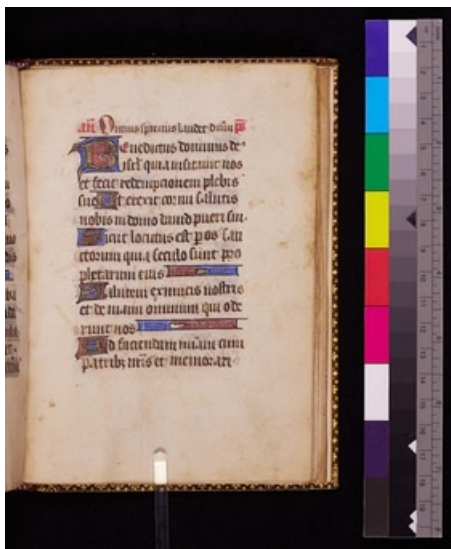 añ Omnis spiritus laudet dñm ps
Benedictus dominus de⁹
isrl' quia visitavit nos
et fecit redempcionem plebis
sue Et erexit cornu salutis
nobis in domo david pueri sui
Sicut locutus est p os san
ctorum qui a seculo sunt pro
phetarum eius
Salutem ex inimicis nostris
et de manu omnium qui ode
runt nos
Ad faciendam miãm cum
patribȝ nr̃is et memorari